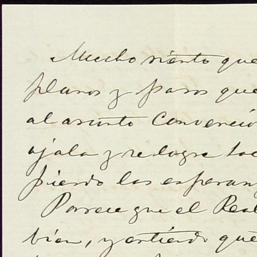 Mucho siento que
planos y pasos que
al asunto Convenció
ojala y se logre to
pierdo las esperan
Parece que el Real
bien, y entiendo que